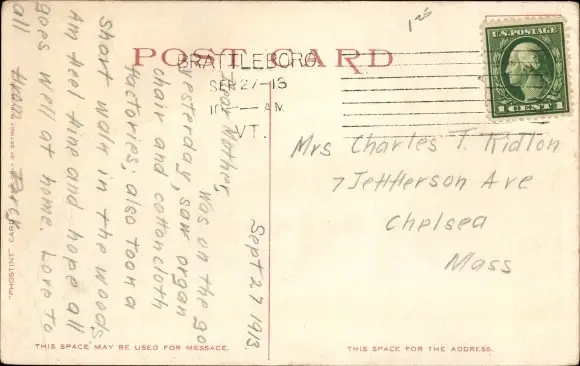 POST CARD
BRATTLEBORO,
SEP 27-13
10 — AM
VT.
U.S. POSTAGE
1 CENT 1
Mrs Charles T. Ridlon
7 Jefferson Ave
Chelsea
Mass
Sept 27 1913.
Dear Mother,
was on the go
yesterday, saw organ
chair and cotton cloth
factories; also took a
short walk in the woods
Am feel fine and hope all
goes well at home. Love to
all
"PHOSTINT" CARD
THIS SPACE MAY BE USED FOR MESSAGE.
THIS SPACE FOR THE ADDRESS.